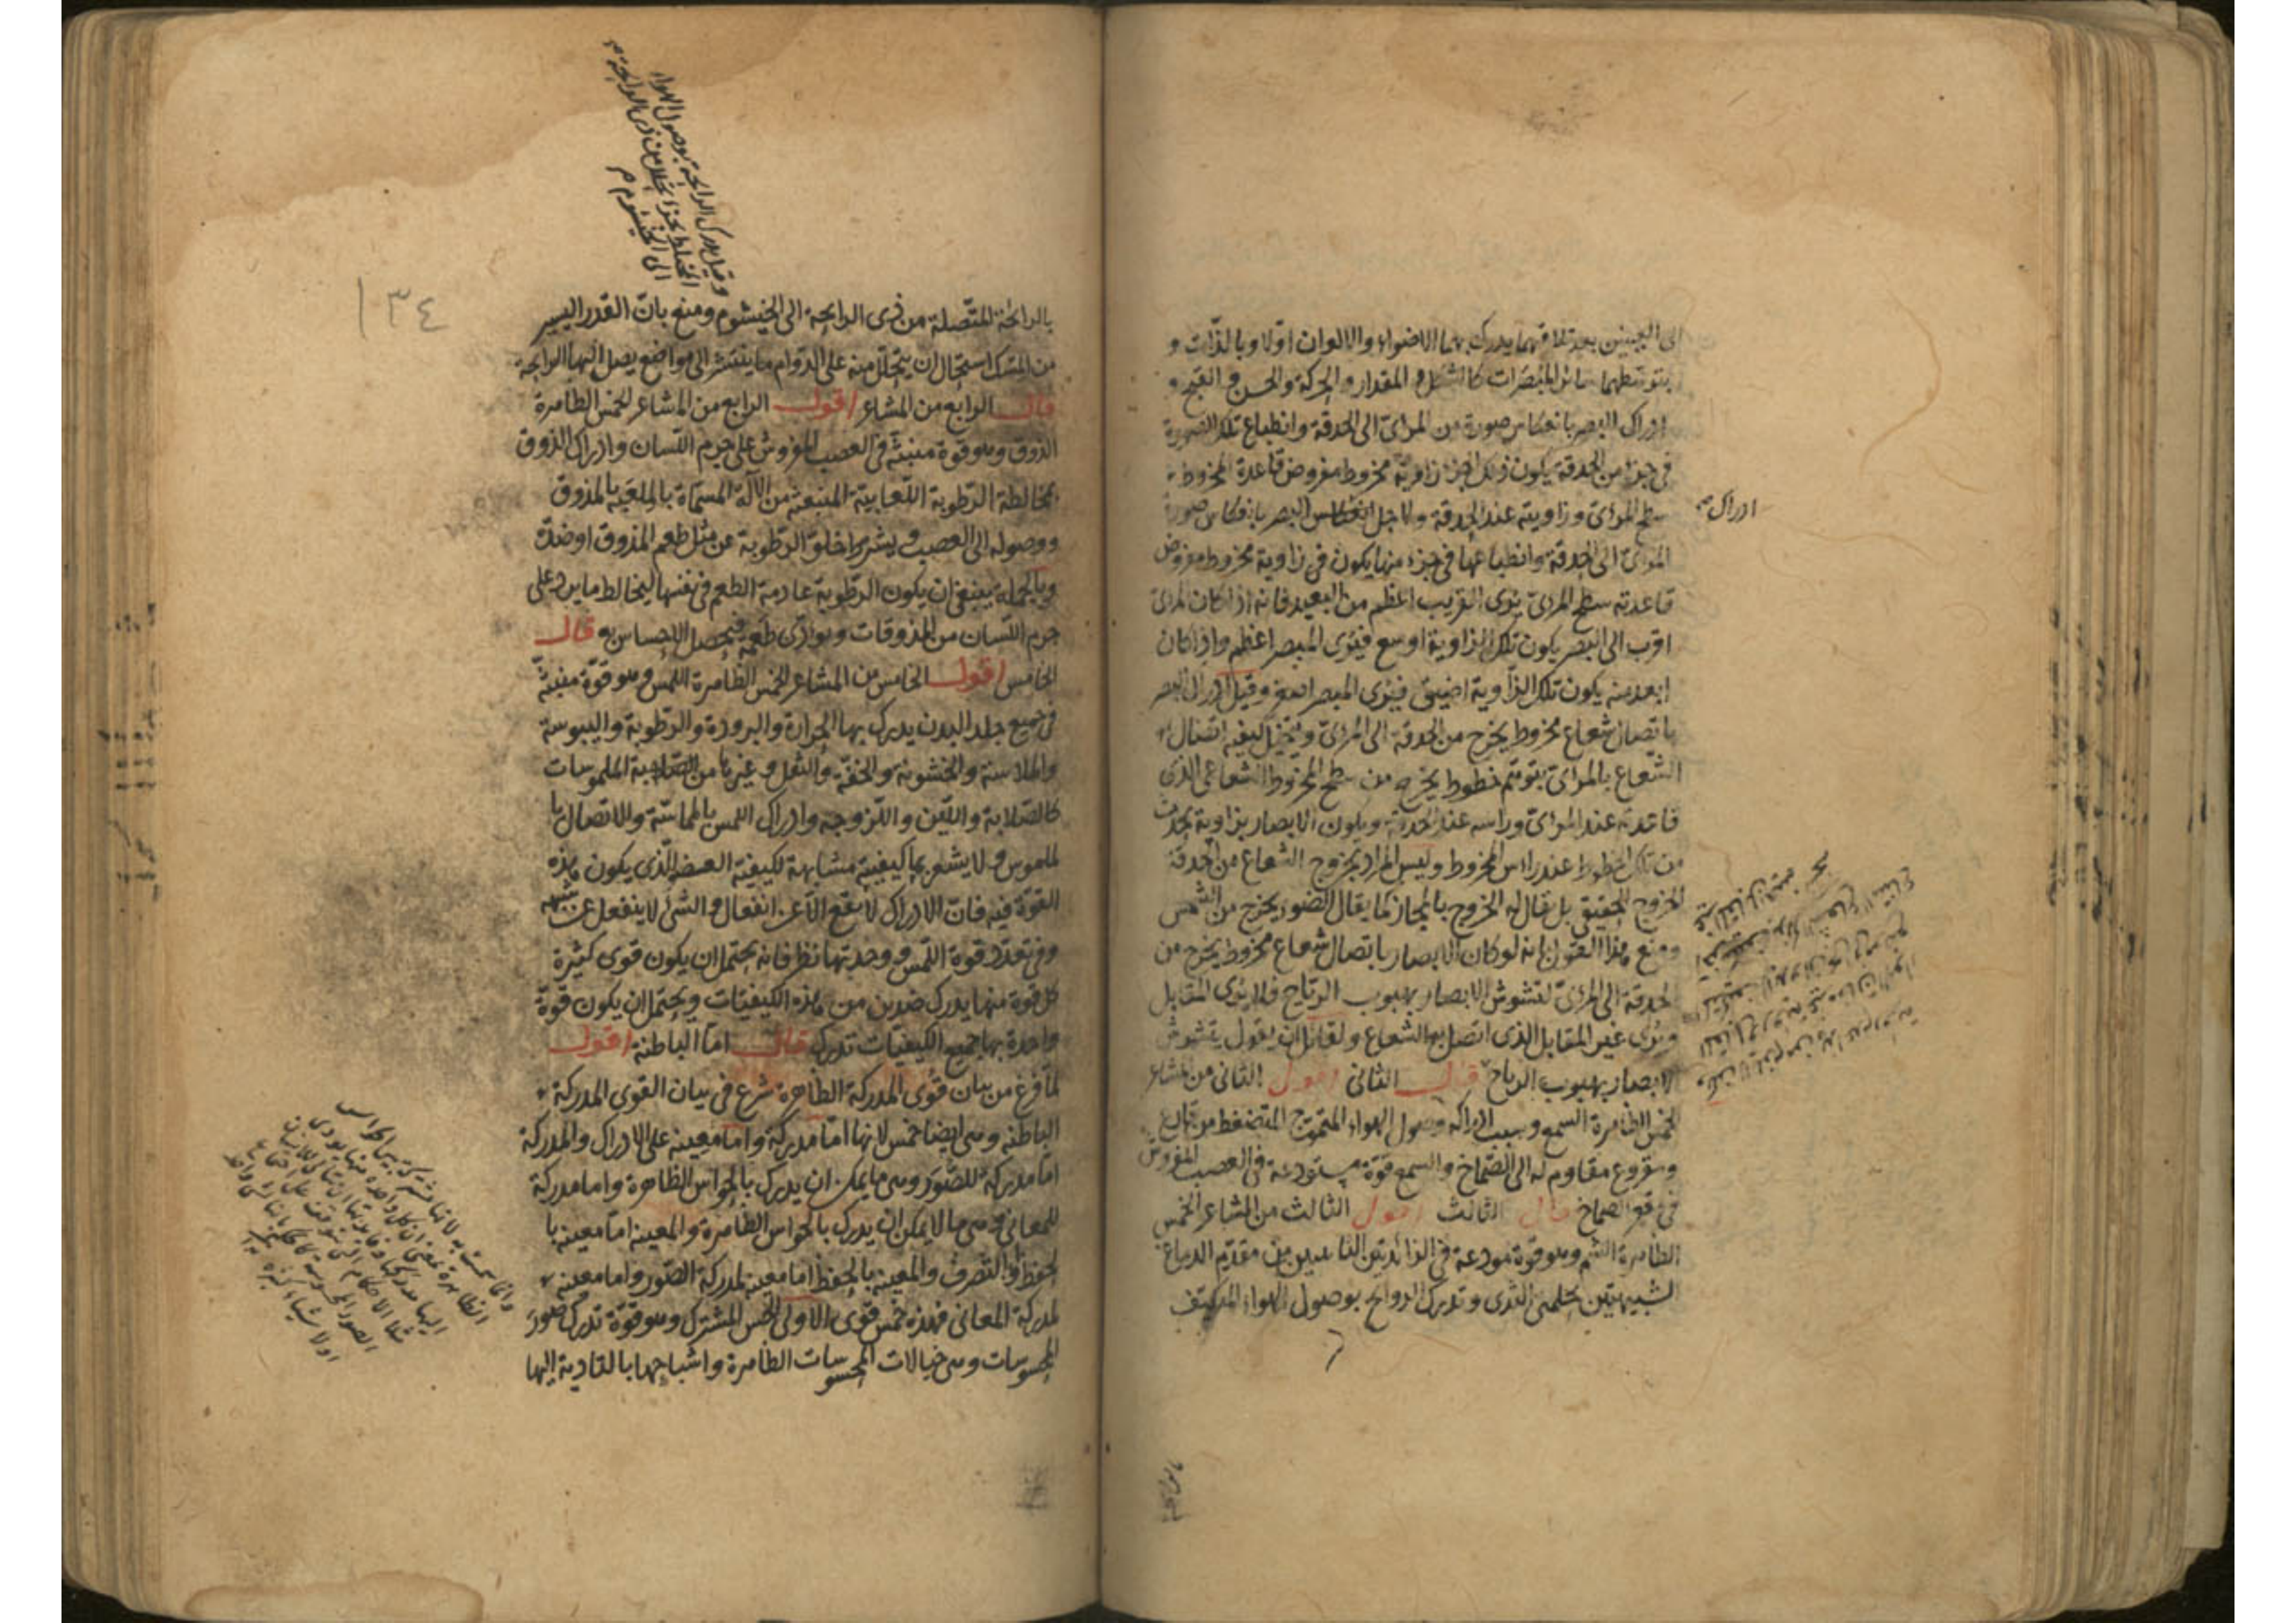 الى العينين بعد تلاقيهما يدرك بهما الاضواء والالوان اولا وبالذات و
بتوسطهما سائر المبصرات كالشكل والمقدار والحركة والحسن والقبح و
ادراك البصر بانعكاس صورة من المرائ الى الحدقة وانطباع تلك الصورة
فى جزء من الحدقة يكون ذلك الجزء زاوية مخروط مفروض قاعدة المخروط
سطح المرائ وزاويته عند الحدقة ولاجل انعكاس البصر بانعكاس صورة
ادراك
المرائ الى الحدقة وانطباعها فى جزء منها يكون فى زاوية مخروط مفروض
قاعدته سطح المرئ يرى القريب اعظم من البعيد فانه اذا كان المرئ
اقرب الى البصر يكون تلك الزاوية اوسع فيرى المبصر اعظم واذا كان
ابعد منه يكون تلك الزاوية اضيق فيرى المبصر اصغر وقيل ادراك البصر
باتصال شعاع مخروط يخرج من الحدقة الى المرئ ويتخيل كيفية اتصال
الشعاع بالمرائ بتوهم خطوط يخرج من سطح المخروط الشعاعى الذى
قاعدته عند المرائ وراسه عند الحدقة ويكون الابصار بزاوية يحدث
من تلك الخطوط عند راس المخروط وليس المراد بخروج الشعاع من الحدقة
الخروج الحقيقى بل يقال له الخروج بالمجاز كما يقال الضوء يخرج من الشمس
ومنع هذا القول بانه لو كان الابصار باتصال شعاع مخروط يخرج من
الحدقة الى المرئ لتشوش الابصار بهبوب الرياح فلا يرى المقابل
ويرى غير المقابل الذى اتصل به الشعاع ولقائل ان يقول يتشوش
الابصار بهبوب الرياح قال الثانى اقول الثانى من المشاعر
الخمس الظاهرة السمع وسبب ادراكه وصول الهواء المتموج المنضغط من قارع
ومقروع مقاوم له الى الصماخ والسمع قوة مستودعة فى العصب المفروش
فى قعر الصماخ قال الثالث اقول الثالث من المشاعر الخمس
الظاهرة الشم وهو قوة مودعة فى الزائدتين الناتئتين من مقدم الدماغ
الشبيهتين بحلمتى الثدى وتدرك الروائح بوصول الهواء المتكيف
وقيل يدرك الرائحة بوصول الهواء
المختلط بجزء تحلل من ذى الرائحة
الى الخيشوم
١٣٤
بالرائحة المتصلة من ذى الرائحة الى الخيشوم ومنع بان القدر اليسير
من المسك استحال ان يتحلل منه على الدوام ما ينتشر الى مواضع يصل اليها الرائحة
قال الرابع من المشاعر اقول الرابع من المشاعر الخمس الظاهرة
الذوق وهو قوة منبثة فى العصب المفروش على جرم اللسان وادراك الذوق
بمخالطة الرطوبة اللعابية المنبعثة من الآلة المسماة بالملعبة بالمذوق
ووصوله الى العصب ويشرط خلو الرطوبة عن مثل طعم المذوق او ضده
وبالجملة ينبغى ان يكون الرطوبة عادمة الطعم فى نفسها ليخالط ما يرد على
جرم اللسان من المذوقات ويؤدى طعمه فيحصل الاحساس به قال
الخامس اقول الخامس من المشاعر الخمس الظاهرة اللمس وهو قوة منبثة
فى جميع جلد البدن يدرك بها الحرارة والبرودة والرطوبة واليبوسة
والملاسة والخشونة والخفة والثقل وغيرها من الملموسات
كالصلابة واللين واللزوجة وادراك اللمس بالمماسة والاتصال با
لملموس ولا يشعر بما كيفيته مشابهة لكيفية العضو الذى يكون هذه
القوة فيه فان الادراك لا يقع الا عن انفعال والشئ لا ينفعل عن شبيهه
وفى تعدد قوة اللمس ووحدتها نظر فانه يحتمل ان يكون قوى كثيرة
كل قوة منها يدرك ضدين من هذه الكيفيات ويحتمل ان يكون قوة
واحدة بها جميع الكيفيات تدرك قال اما الباطنة اقول
لما فرغ من بيان قوى المدركة الظاهرة شرع فى بيان القوى المدركة
الباطنة وهى ايضا خمس لانها اما مدركة واما معينة على الادراك والمدركة
اما مدركة للصور وهى ما يمكن ان يدرك بالحواس الظاهرة واما مدركة
للمعانى وهى ما لا يمكن ان يدرك بالحواس الظاهرة والمعينة اما معينة با
لحفظ او التصرف والمعينة بالحفظ اما معينة لمدركة الصور واما معينة
لمدركة المعانى فهذه خمس قوى الاولى الحس المشترك وهو قوة تدرك صور
المحسوسات وهى خيالات المحسوسات الظاهرة واشباحها بالتادية اليها